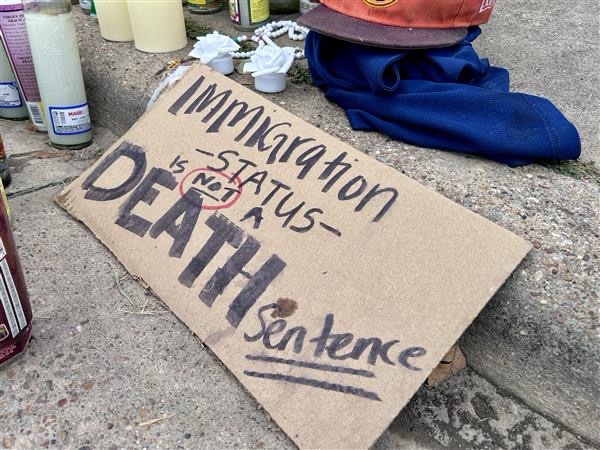 IMMIGration
- STATUS -
IS NOT A
DEATH
Sentence